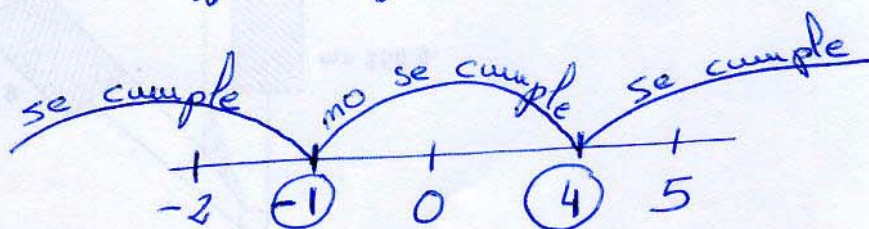 se cumple no se cumple se cumple
-2 -1 0 4 5